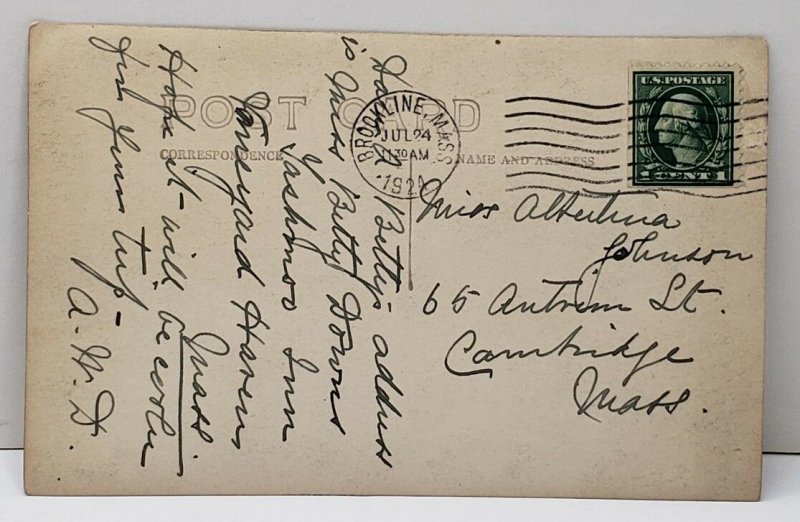 POST CARD
CORRESPONDENCE
NAME AND ADDRESS
BROOKLINE, MASS.
JUL 24
11 30 AM
U.S. POSTAGE
1 CENT 1
Miss Albertina
Johnson
65 Antrim St.
Cambridge
Mass.
Betty's address
is Miss Betty Downs
Tashmoo Inn
Vineyard Haven,
Mass.
Hope it will be cooler
for your trip -
A. W. D.